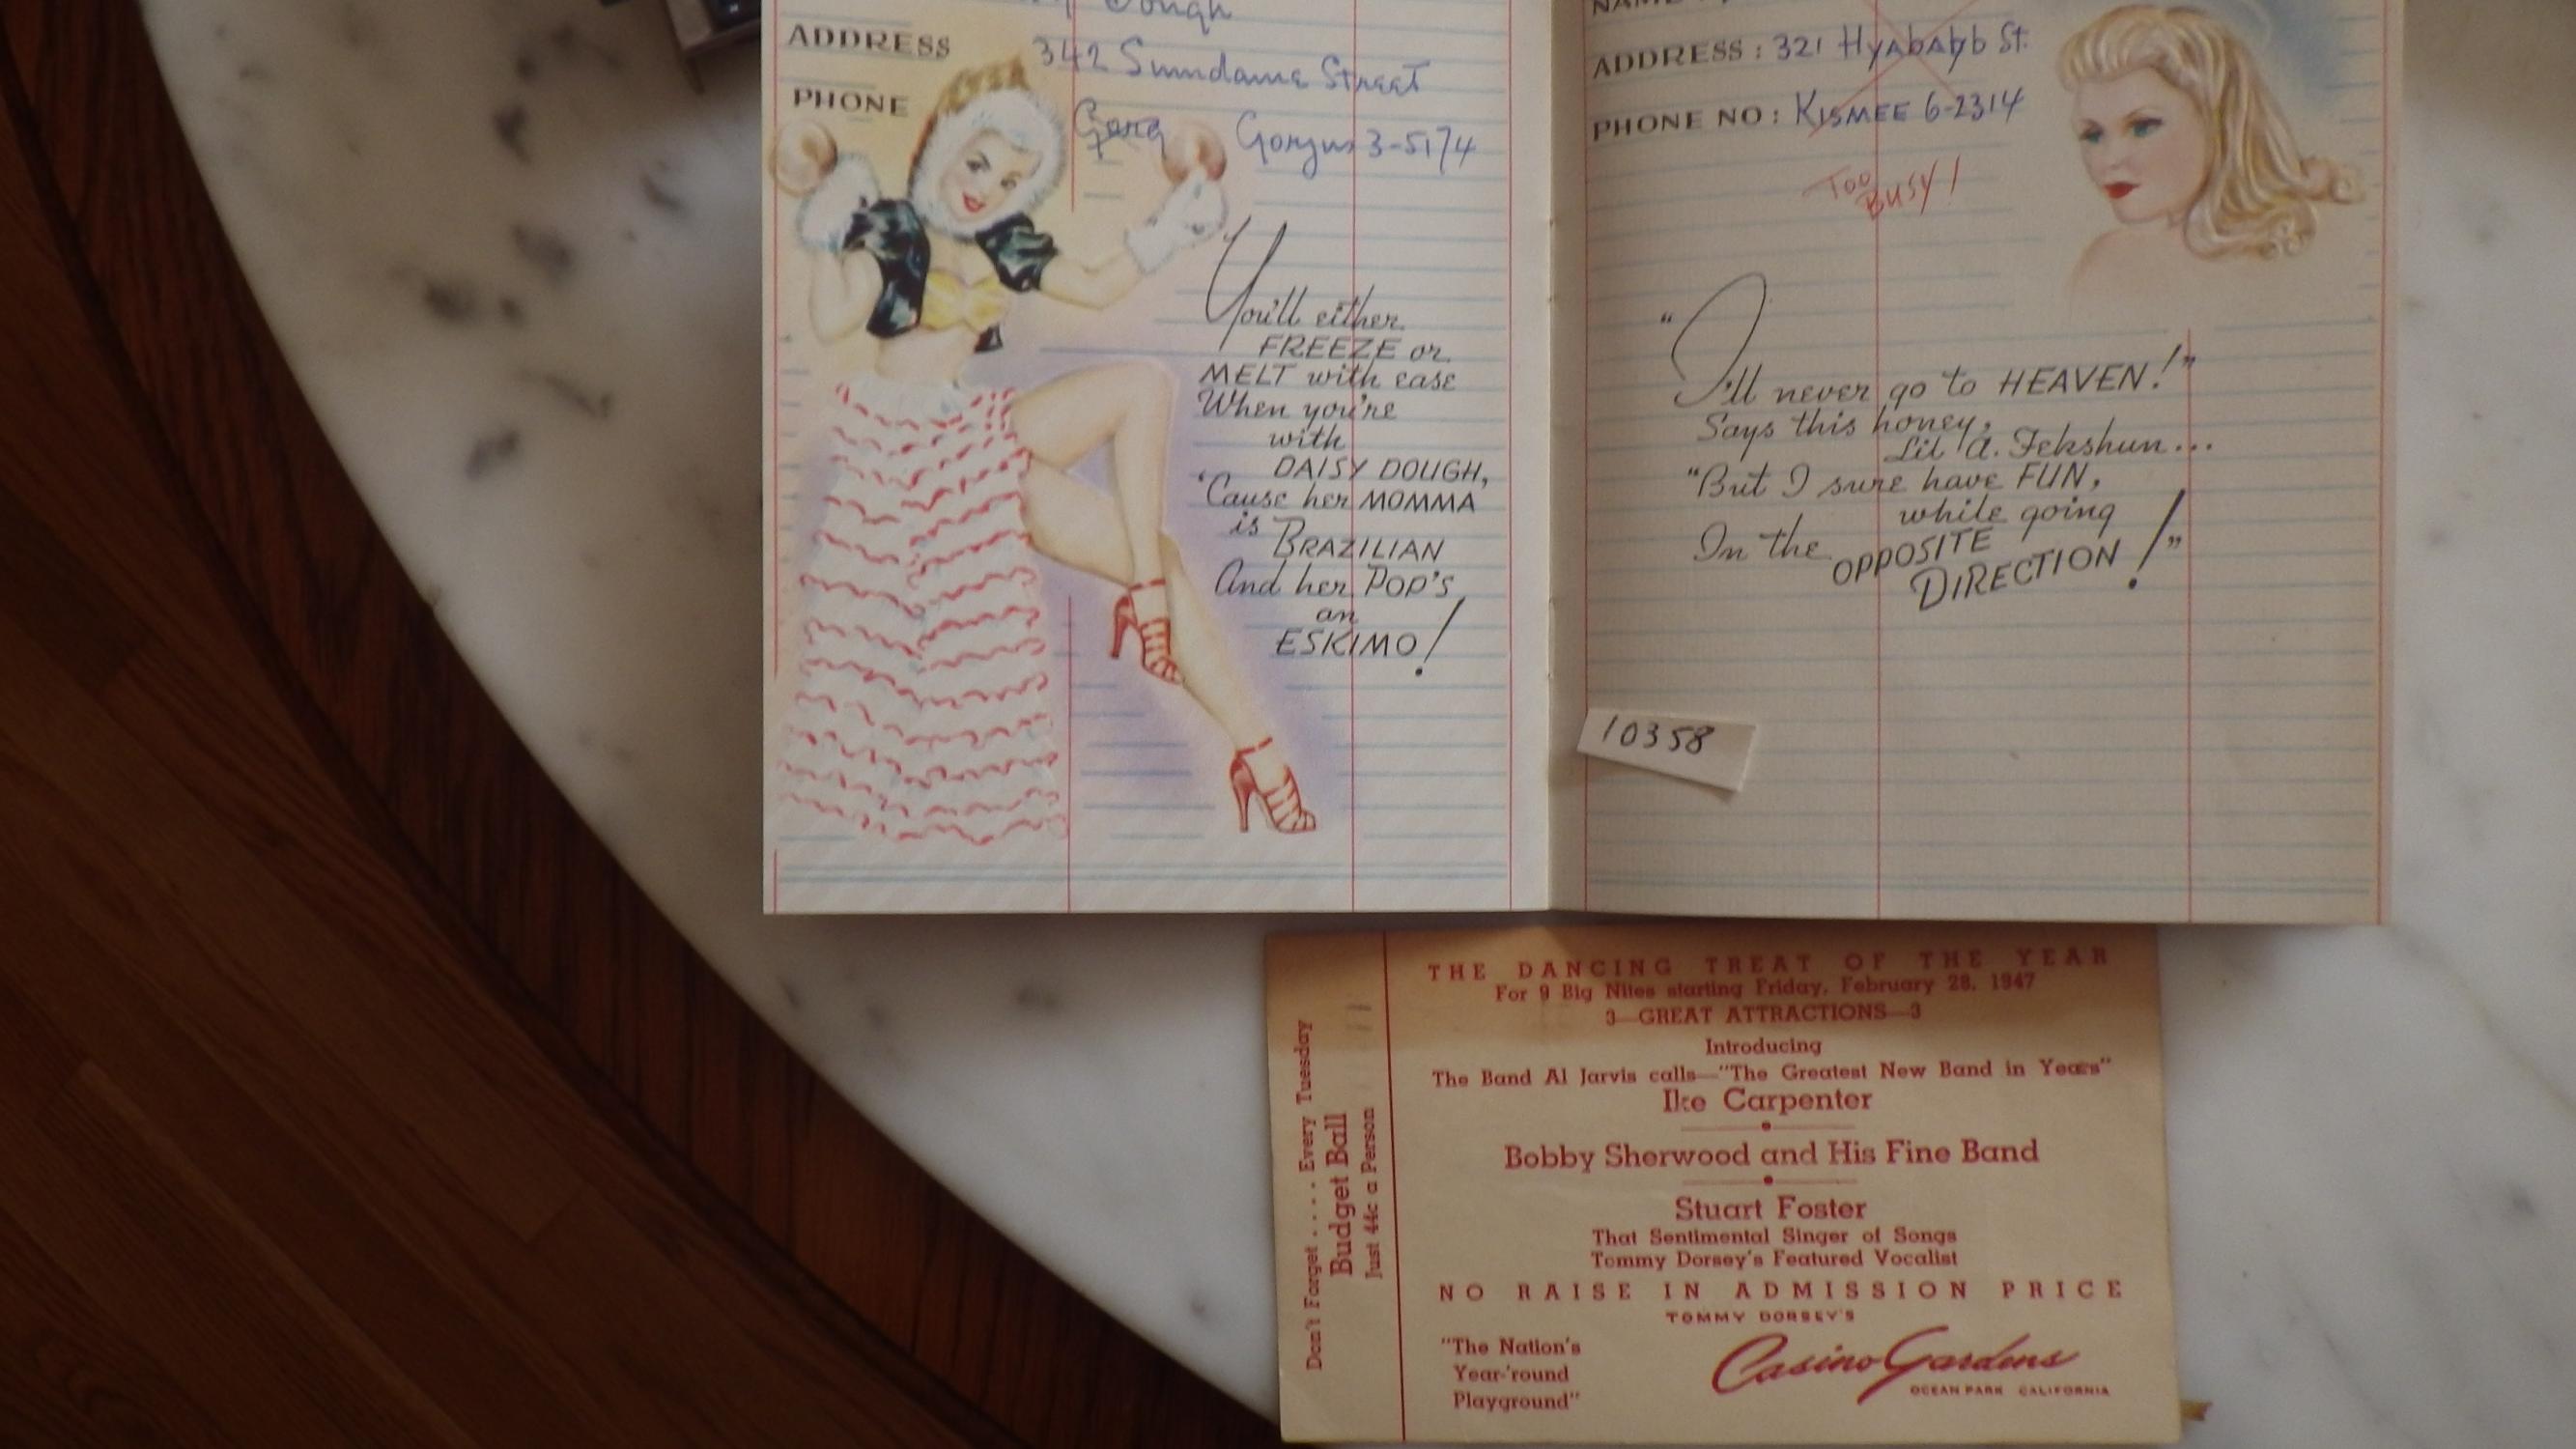 Dough
ADDRESS 342 Sundance Street
PHONE Gorgus 3-5174
You'll either
FREEZE or
MELT with ease
When you're
with
DAISY DOUGH,
'Cause her MOMMA
is BRAZILIAN
And her POP'S
an
ESKIMO!
NAME
ADDRESS: 321 HyAbAbb St.
PHONE NO: KISMEE 6-2314
Too
BUSY!
"I'll never go to HEAVEN!"
Says this honey,
Lil A. Fekshun...
"But I sure have FUN,
while going
In the OPPOSITE
DIRECTION!"
10358
Don't Forget..... Every Tuesday
Budget Ball
Just 44c a Person
THE DANCING TREAT OF THE YEAR
For 9 Big Nites starting Friday, February 28, 1947
3—GREAT ATTRACTIONS—3
Introducing
The Band Al Jarvis calls—"The Greatest New Band in Years"
Ike Carpenter
Bobby Sherwood and His Fine Band
Stuart Foster
That Sentimental Singer of Songs
Tommy Dorsey's Featured Vocalist
NO RAISE IN ADMISSION PRICE
TOMMY DORSEY'S
"The Nation's
Year-'round
Playground"
Casino Gardens
OCEAN PARK CALIFORNIA